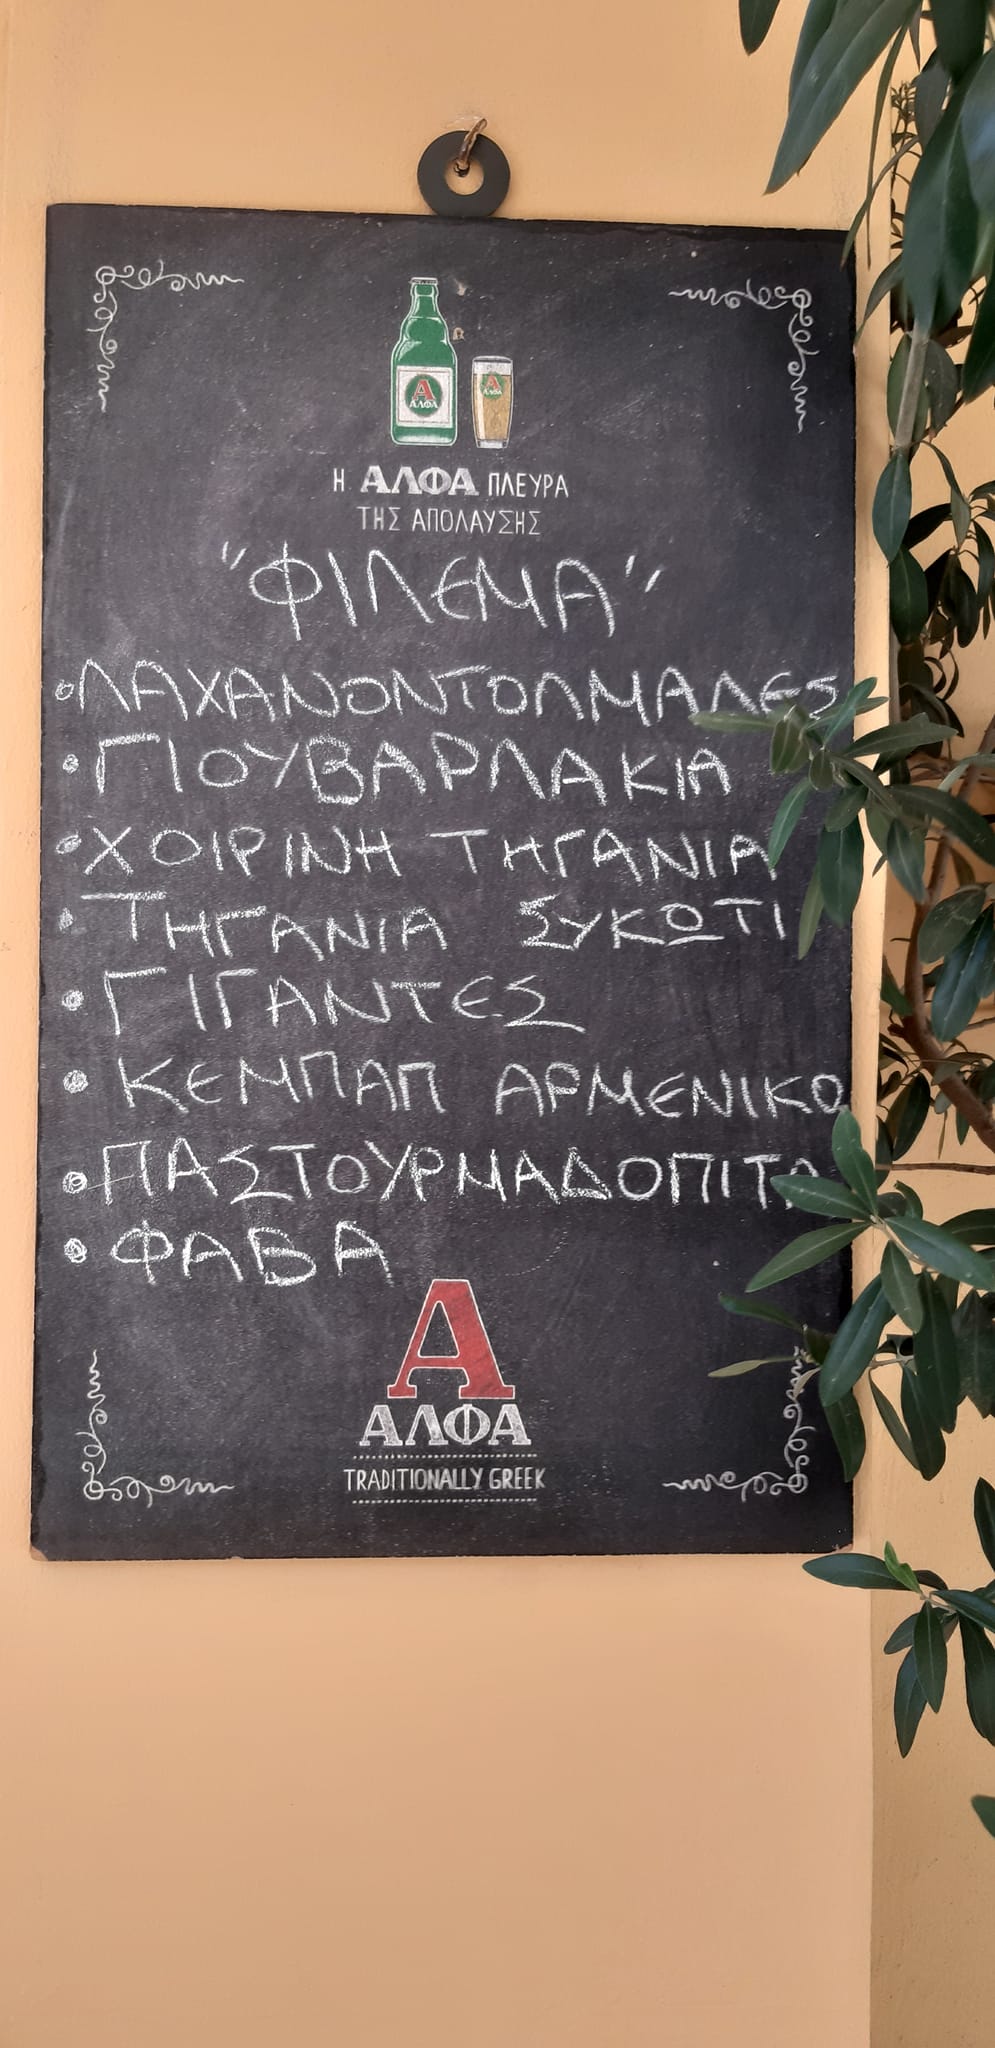 Α
ΑΛΦΑ
Α
ΑΛΦΑ
Η ΑΛΦΑ ΠΛΕΥΡΑ
ΤΗΣ ΑΠΟΛΑΥΣΗΣ
"ΦΙΛΕΜΑ"
•ΛΑΧΑΝΟΝΤΟΛΜΑΔΕΣ
•ΓΙΟΥΒΑΡΛΑΚΙΑ
•ΧΟΙΡΙΝΗ ΤΗΓΑΝΙΑ
•ΤΗΓΑΝΙΑ ΣΥΚΩΤΙ
•ΓΙΓΑΝΤΕΣ
•ΚΕΜΠΑΠ ΑΡΜΕΝΙΚΟ
•ΠΑΣΤΟΥΡΜΑΔΟΠΙΤΑ
•ΦΑΒΑ
Α
ΑΛΦΑ
TRADITIONALLY GREEK